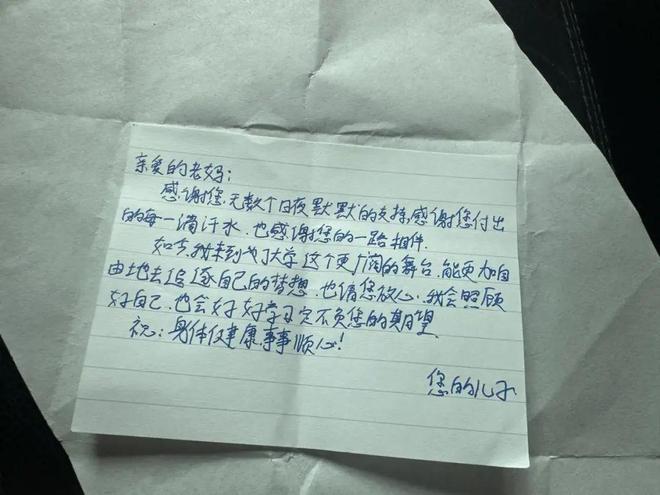 亲爱的老妈：
感谢您无数个日夜默默的支持，感谢您付出
的每一滴汗水，也感谢您的一路相伴。
如今，我来到大学这个更广阔的舞台，能更加自
由地去追逐自己的梦想，也请您放心，我会照顾
好自己，也会好好学习定不负您的期望
祝：身体健康，事事顺心！
您的儿子